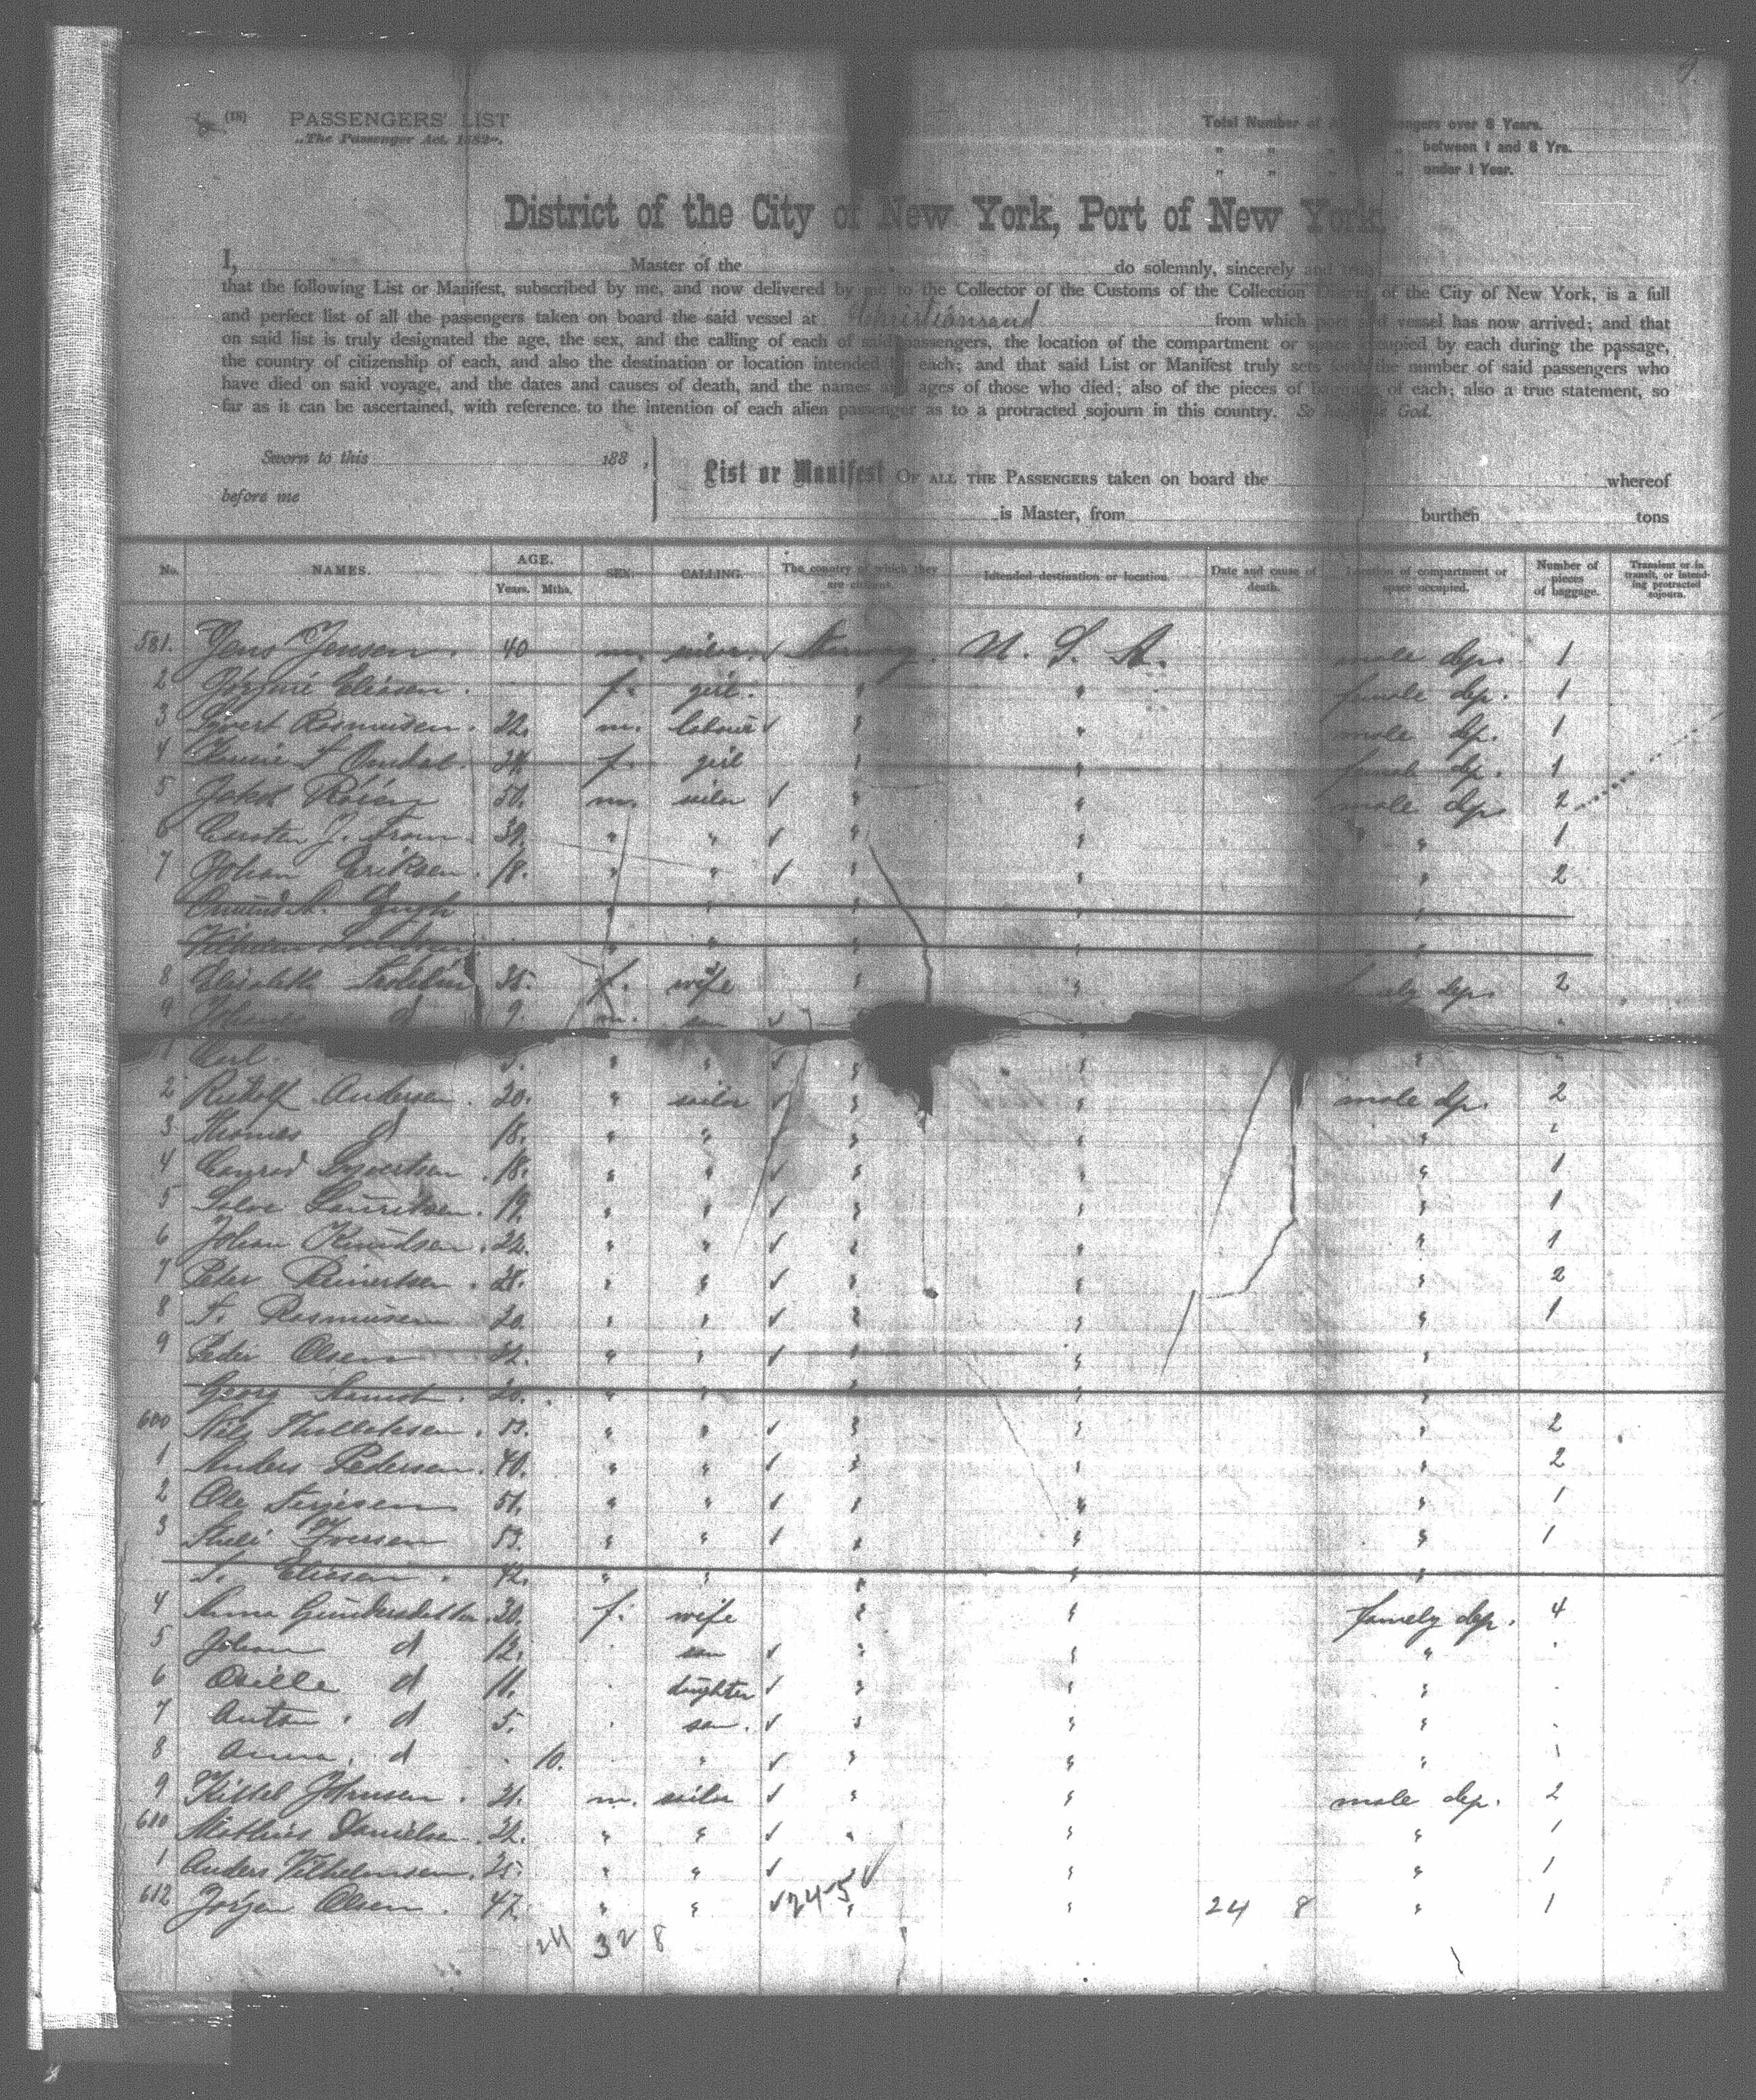 (18) PASSENGERS' LIST
„The Passenger Act, 1882".
Total Number of Passengers over 8 Years.
„ „ „ „ between 1 and 8 Yrs.
„ „ „ „ under 1 Year.
District of the City of New York, Port of New York.
I, Master of the do solemnly, sincerely and truly
that the following List or Manifest, subscribed by me, and now delivered by me to the Collector of the Customs of the Collection District of the City of New York, is a full
and perfect list of all the passengers taken on board the said vessel at Christiansand from which port said vessel has now arrived; and that
on said list is truly designated the age, the sex, and the calling of each of said passengers, the location of the compartment or space occupied by each during the passage,
the country of citizenship of each, and also the destination or location intended by each; and that said List or Manifest truly sets forth the number of said passengers who
have died on said voyage, and the dates and causes of death, and the names and ages of those who died; also of the pieces of baggage of each; also a true statement, so
far as it can be ascertained, with reference to the intention of each alien passenger as to a protracted sojourn in this country. So help me God.
Sworn to this 188 ,
before me
List or Manifest OF ALL THE PASSENGERS taken on board the whereof
is Master, from burthen tons
No. NAMES. AGE. Years. Mths. SEX. CALLING. The country of which they are citizens. Intended destination or location. Date and cause of death. Location of compartment or space occupied. Number of pieces of baggage. Transient or in transit, or intending protracted sojourn.
581. Jens Jensen. 40 m. sailor. Norway. U. S. A. male dep. 1
2 Eliasen. f. girl. " " female dep. 1
3 Rasmussen. 22. m. labour " " male dep. 1
4 f. girl " " female dep. 1
5 Jakob 50. m. sailor " " male dep 2
6 J. 39. " " " " " " 1
7 Johan Eriksen. 18. " " " " " 2
" " " " "
" " " " "
8 Elisabeth 35. f. wife " " famely dep. 2
9 Johannes d 9. m. son
1 Carl. 5. " " " " "
2 Rudolf Andersen. 20. " sailor " " male dp. 2
3 Thomas d 18. " " " " "
4 Conrad Syvertsen. 18. " " " " " 1
5 Lauritsen. 19. " " " " " 1
6 Johan Knudsen. 22. " " " " " 1
7 Peter Reinertsen. 28. " " " " " 2
8 T. Rasmusen 20. " " " " " 1
9 Peder Olsen 32. " " " " "
Georg 20. " " " " "
600 Nils 53. " " " " " 2
1 Anders Pedersen. 40. " " " " " 2
2 Ole Terjesen 51. " " " " " 1
3 Iversen 53. " " " " " 1
Eliesen. 42. " " " " "
4 Anna Gundersdatter. 30. f. wife " " famely dep. 4
5 Johan d 12. son " " "
6 d 11. daughter " " "
7 Anton. d 5. son. " " "
8 Anna. d 10. " " " "
9 Kittel Johnsen. 21. m. sailor " " male dep. 2
610 Mathias Danielsen. 22. " " " " " 1
1 Anders Vilhelmsen. 25. " " " " " 1
612 Jörgen Olsen. 47. " " 24-5 " " 24 8 " 1
24 32 8